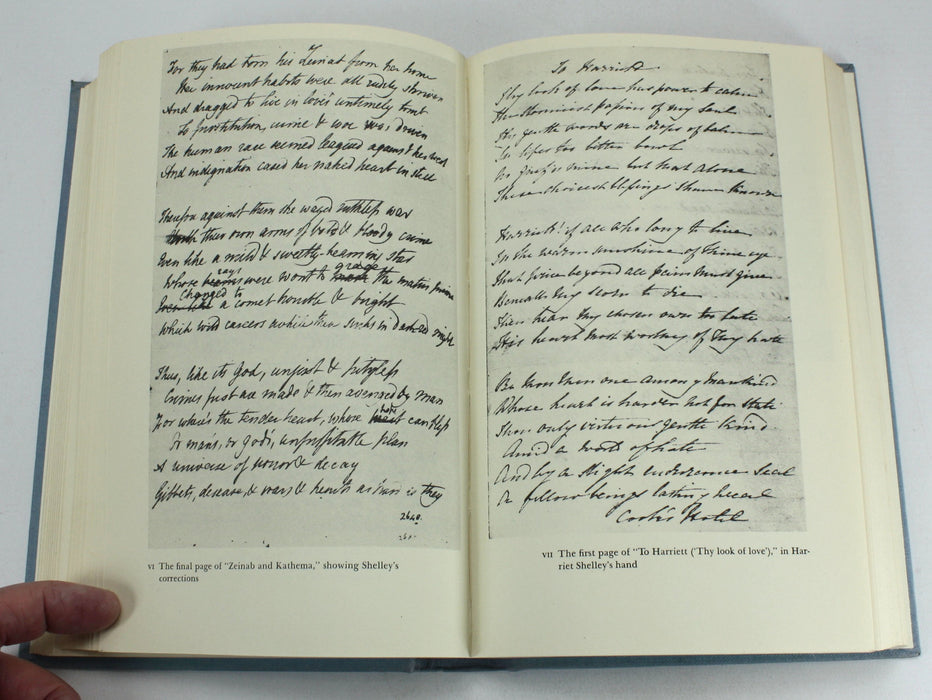 For they had torn his Zeinab from her home
Her innocent habits were all rudely shriven
And dragged to live in love's untimely tomb
To prostitution, crime & woe was driven
The human race seemed leagued against her weal
And indignation cased her naked heart in steel
Therefore against them she waged ruthless war
With their own arms of bold & bloody crime
Even like a mild & sweetly-beaming star
Whose beams rays were wont to grace the matin prime
Even like changed to a comet horrible & bright
Which wild careers awhile then sinks in dark-red night
Thus, like its God, unjust & pityless
Crimes first are made & then avenged by man
For where's the tender heart, whose hope can bless
Or man's, or god's, unprofitable plan
A universe of horror & decay
Gibbets, disease, & wars & hearts as hard as they
2640.
VI The final page of "Zeinab and Kathema," showing Shelley's
corrections
To Harriett
Thy look of love has power to calm
The stormiest passion of my soul
Thy gentle words are drops of balm
In life's too bitter bowl
No grief is mine but that alone
These choicest blessings I have known
Harriett! if all who long to live
In the warm sunshine of thine eye
That price beyond all pain must give
Beneath thy scorn to die
Then hear thy chosen own too late
His heart most worthy of thy hate
Be thou then one among mankind
Whose heart is harder not for state
Thou only virtuous gentle kind
Amid a world of hate
And by a slight endurance seal
A fellow beings lasting weal
Cook's Hotel
VII The first page of "To Harriett ('Thy look of love')," in Har-
riet Shelley's hand